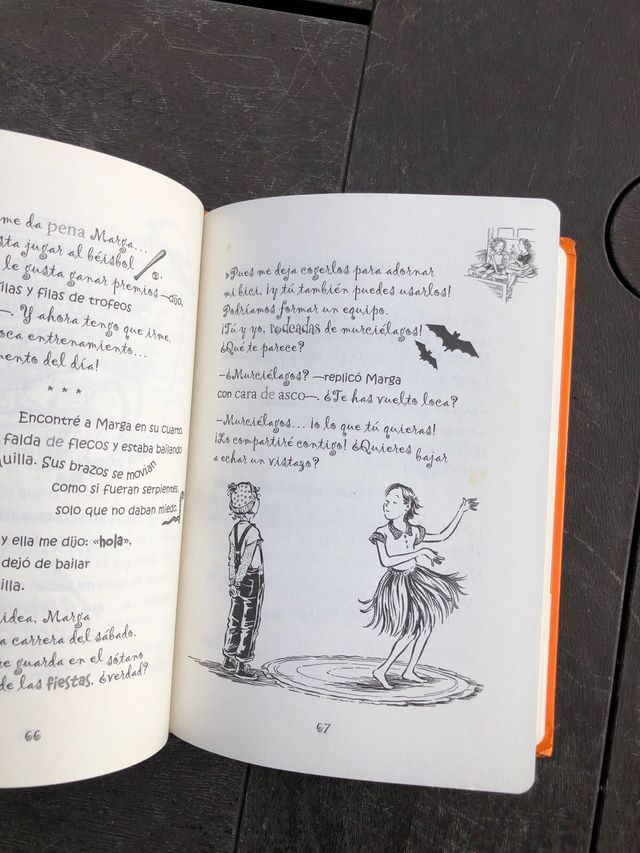 me da pena Marga...
sta jugar al béisbol
le gusta ganar premios —dijo,
filas y filas de trofeos
—. Y ahora tengo que irme,
oca entrenamiento...
mento del día!
* * *
Encontré a Marga en su cuarto.
falda de flecos y estaba bailando
quilla. Sus brazos se movían
como si fueran serpientes,
solo que no daban miedo.
y ella me dijo: «hola»,
dejó de bailar
illa.
idea, Marga
a carrera del sábado.
re guarda en el sótano
de las fiestas, ¿verdad?
66
»Pues me deja cogerlos para adornar
mi bici. ¡y tú también puedes usarlos!
Podríamos formar un equipo.
¡Tú y yo, rodeadas de murciélagos!
¿Qué te parece?
—¿Murciélagos? —replicó Marga
con cara de asco—. ¿Te has vuelto loca?
—Murciélagos... ¡o lo que tú quieras!
¡Lo compartiré contigo! ¿Quieres bajar
a echar un vistazo?
67